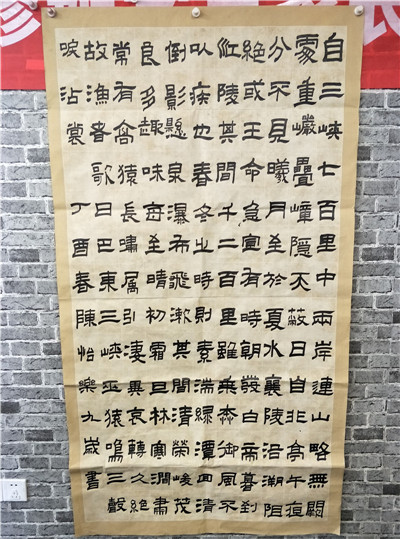 自三峽七百里中兩岸連山略無闕
處重巖疊嶂隱天蔽日自非亭午夜
分不見曦月至於夏水襄陵沿溯阻
絕或王命急宣有時朝發白帝暮到
江陵其間千二百里雖乘奔御風不
以疾也春冬之時則素湍綠潭回清
倒影懸泉瀑布飛漱其間清榮峻茂
良多趣味每至晴初霜旦林寒澗肅
常有高猿長嘯屬引淒異哀轉久絕
故漁者歌曰巴東三峽巫猿鳴三聲
唳沾裳 丁酉春陳怡樂九歲書